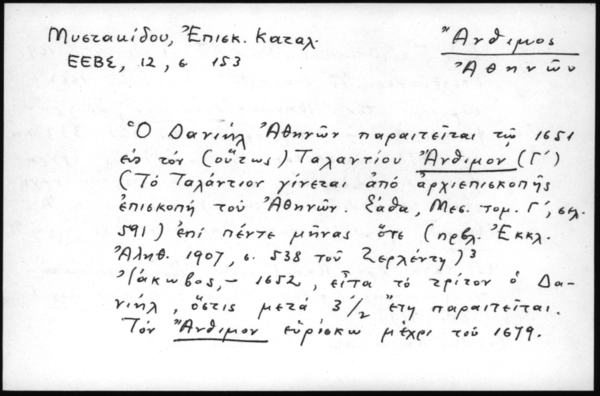 Μυστακίδου, Ἐπισκ. Καταλ.
ΕΕΒΣ, 12, σ. 153
Ἄνθιμος
Ἀθηνῶν
Ὁ Δανιήλ Ἀθηνῶν παραιτεῖται τῷ 1651
εἰς τόν (οὕτως) Ταλαντίου Ἄνθιμον (Γ΄)
(Τό Ταλάντιον γίνεται ἀπό ἀρχιεπισκοπῆς
ἐπισκοπή τοῦ Ἀθηνῶν. Σάθα, Μεσ. τομ. Γ΄, σελ.
591) ἐπί πέντε μῆνας ὅτε (πρβλ. Ἐκκλ.
Ἀληθ. 1907, σ. 538 τοῦ Ζερλέντη)³
Ἰάκωβος, – 1652, εἶτα τό τρίτον ὁ Δα-
νιήλ, ὅστις μετά 3 1/2 ἔτη παραιτεῖται.
Τόν Ἄνθιμον εὑρίσκω μέχρι τοῦ 1679.